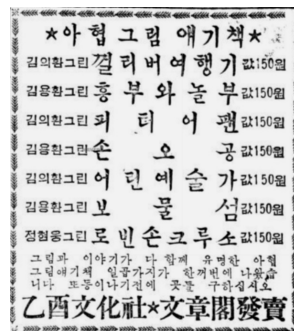 ★아협그림얘기책★
김의환그린 껄리버여행기 값150원
김용환그린 흥부와놀부 값150원
김의환그린 피터어팬 값150원
김용환그린 손오공 값150원
김의환그린 어린예술가 값150원
김용환그린 보물섬 값150원
정현웅그린 로빈손크루소 값150원
그림과 이야기가 다 함께 유명한 아협
그림얘기책 일곱가지가 한꺼번에 나왔습
니다 또동이나기전에 곳들 구하십시오
乙酉文化社★文章閣發賣